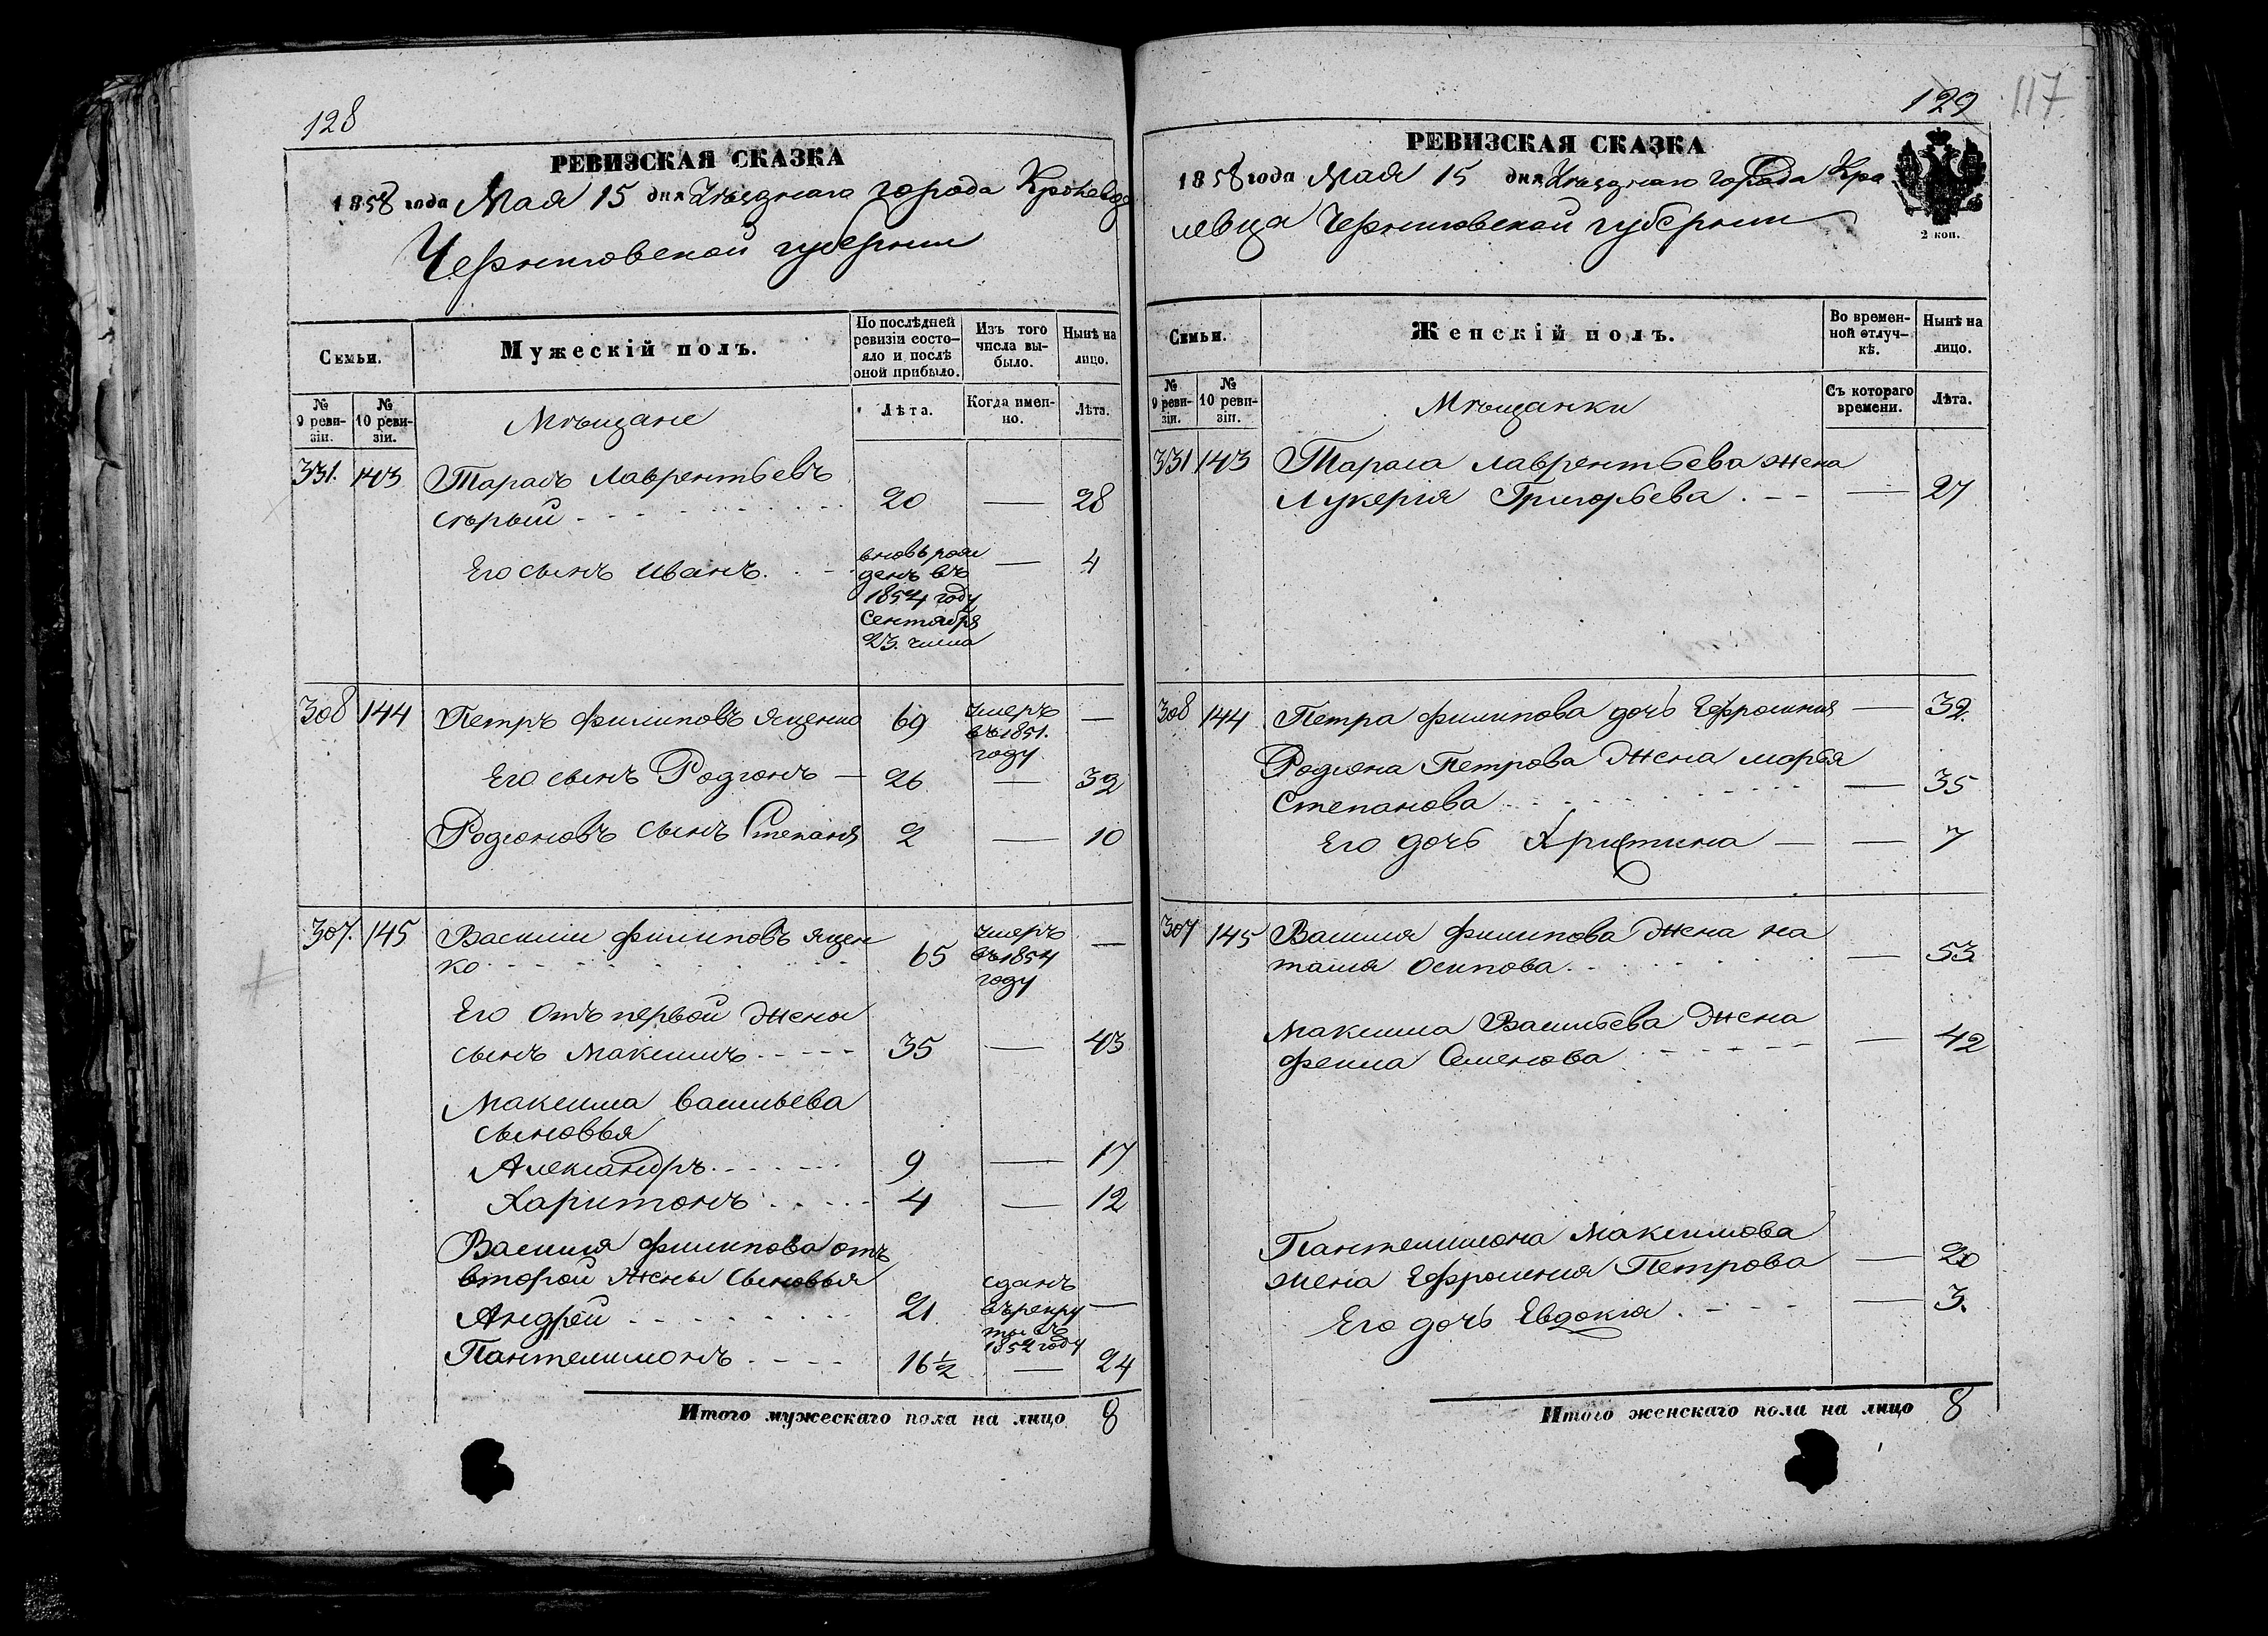 128
РЕВИЗСКАЯ СКАЗКА
1858 года Мая 15 дня Уѣзднаго города Кролевца
Черниговской губерніи
Семьи.
Мужескій полъ.
По послѣдней ревизіи состо-
яло и послѣ
оной прибыло.
Изъ того
числа вы-
было.
Нынѣ на
лицо.
№
9 реви-
зіи.
№
10 реви-
зіи.
Мѣщане
Лѣта.
Когда имен-
но.
Лѣта.
331. 143 Тарасъ Лаврентьевъ
Сѣрый 20 — 28
Его сынъ Иванъ. вновь рож
денъ въ
1854 году
Сентября
23. числа
— 4
308 144 Петръ Филиповъ Яценко 69 умеръ
въ 1851.
году
—
Его сынъ Родіонъ — 26 — 32
Родіоновъ сынъ Степанъ 2 — 10
307. 145 Василій Филиповъ Яцен
ко 65 умеръ
въ 1854
году
—
Его Отъ первой жены
сынъ Максимъ 35 — 43
Максима Васильева
сыновья
Александръ 9 — 17
Харитонъ 4 — 12
Василія Филипова отъ
второй жены сыновья
Андрей 21 сданъ
въ рекру
ты
1854 году
—
Пантелимонъ 16½ — 24
Итого мужескаго пола на лицо 8
129
117
РЕВИЗСКАЯ СКАЗКА
1858 года Мая 15 дня Уѣзднаго города Кро
левца Черниговской губерніи
2 коп.
Семьи.
Женскій полъ.
Во времен-
ной отлуч-
кѣ.
Нынѣ на
лицо.
№
9 реви-
зіи.
№
10 реви-
зіи.
Мѣщанки
Съ котораго
времени.
Лѣта.
331 143 Тараса Лаврентьева жена
Лукерія Григорьева. — 27
308 144 Петра Филипова дочь Ефросинія — 32
Родіона Петрова жена Марья
Степанова — 35
Его дочь Христина — — 7
307 145 Василія Филипова жена На
талія Осипова. — 53
Максима Васильева жена
Фекла Семенова — 42
Пантелимона Максимова
жена Ефросинія Петрова — 20
Его дочь Евдокія. — 3.
Итого женскаго пола на лицо 8